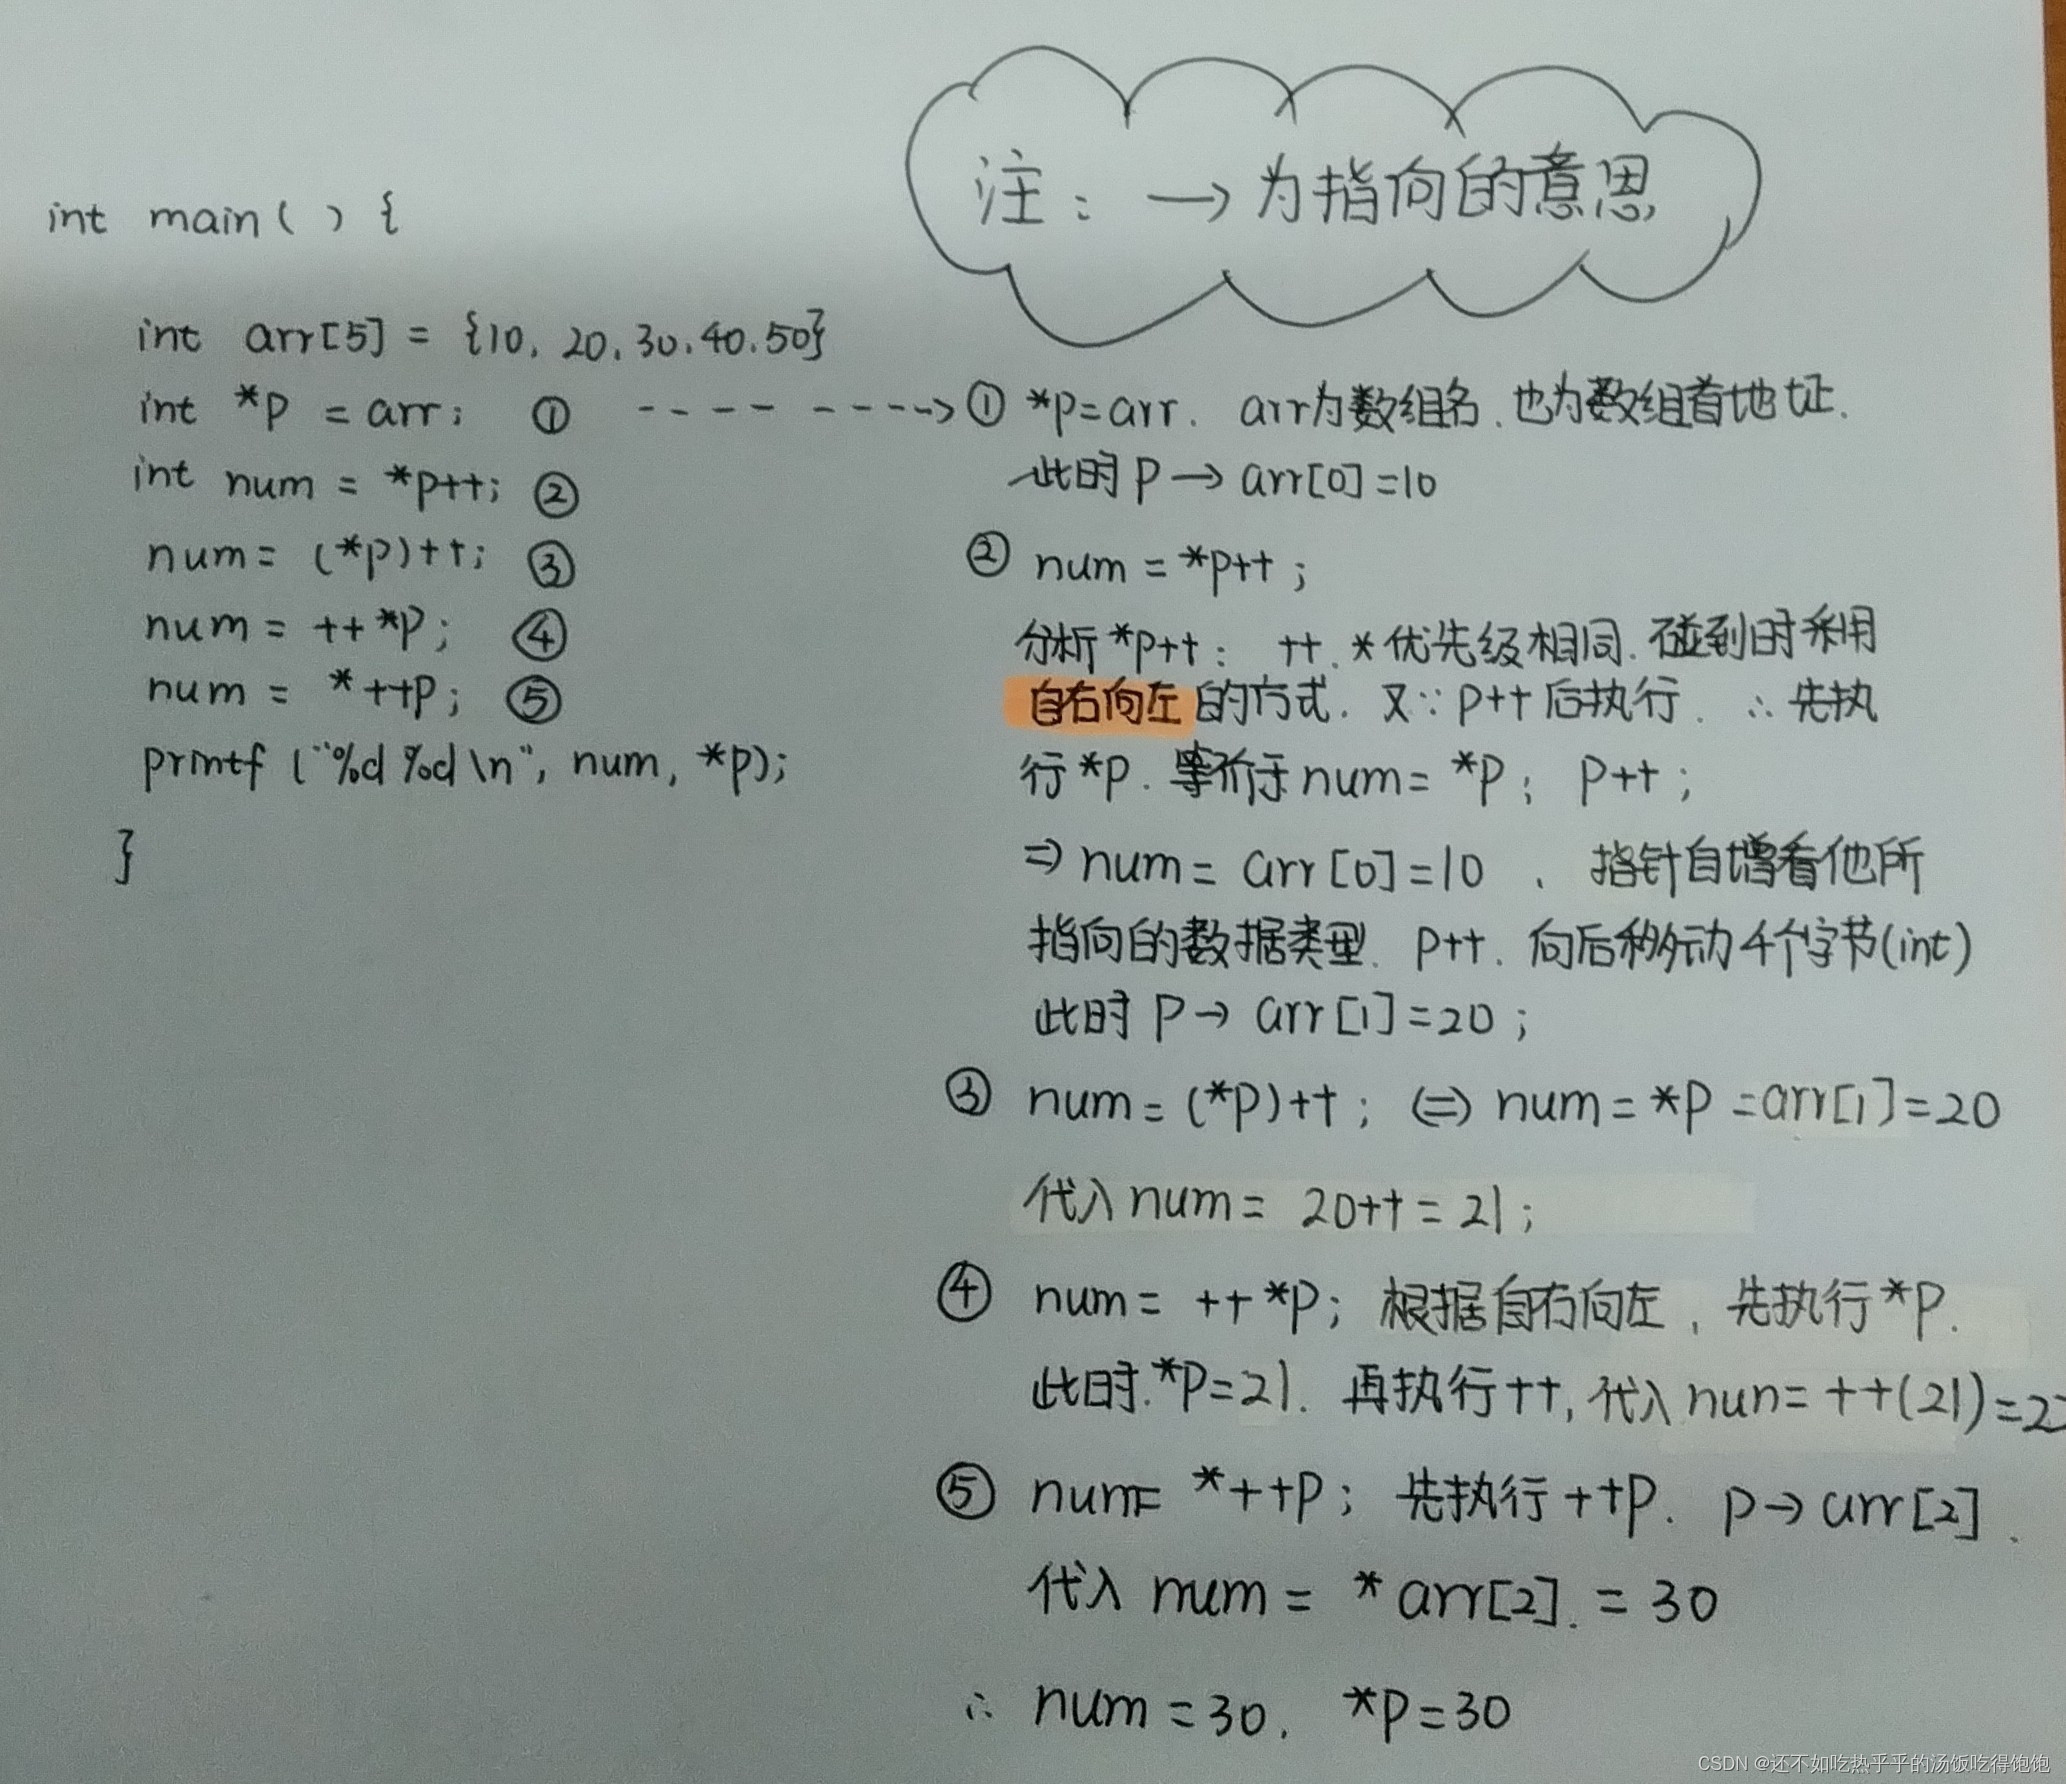 注：→为指向的意思
int main( ) {
int arr[5] = {10, 20, 30, 40, 50}
int *p = arr; ①
int num = *p++; ②
num = (*p)++; ③
num = ++*p; ④
num = *++p; ⑤
printf ("%d %d \n", num, *p);
}
① *p=arr. arr为数组名.也为数组首地址.
此时 p→ arr[0]=10
② num = *p++ ;
分析*p++： ++.*优先级相同.碰到时采用
自右向左的方式. 又∵ p++后执行. ∴先执
行*p. 等价于num= *p; p++;
⇒ num= arr[0]=10 、指针自增看他所
指向的数据类型. p++. 向后移动4个字节(int)
此时 p→ arr[1]=20 ;
③ num= (*p)++ ; ⇔ num= *p =arr[1]=20
代入 num= 20++ = 21;
④ num= ++*p; 根据自右向左, 先执行*p.
此时.*p=21. 再执行++, 代入 nun= ++(21)=22
⑤ num= *++p; 先执行++p. p→arr[2].
代入 num = *arr[2]. = 30
∴ num =30. *p=30
CSDN @还不如吃热乎乎的汤饭吃得饱饱